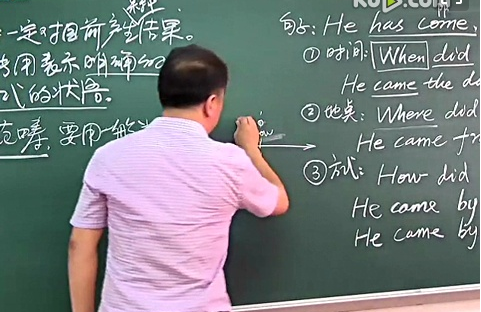 一定对目前产生结果。
常用表示明确的
式的状语。
范畴,要用一般
now
句子: He has come,
① 时间: When did
He came the da
② 地点: Where did
He came fr
③ 方式: How did
He came by
He came by